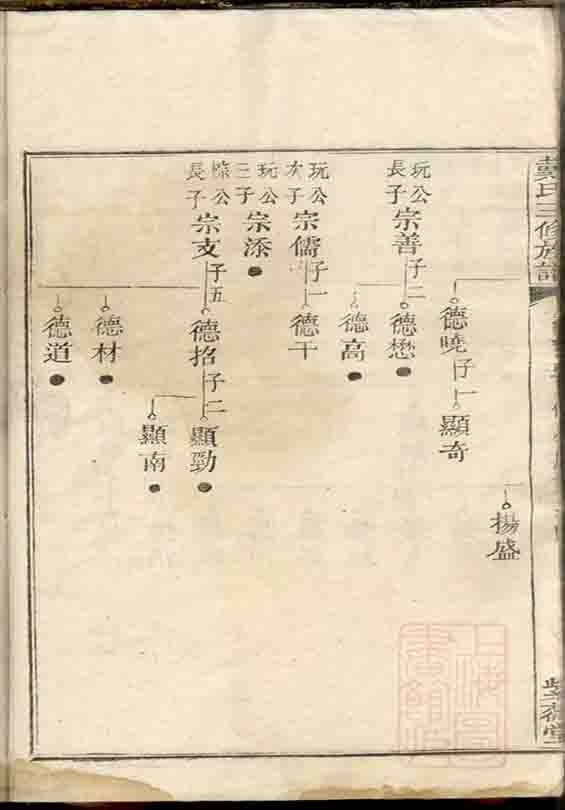 戴氏三修族譜
揚盛
德曉 子一
顯奇
玩公長子
宗善 子二
德懋
德高
玩公次子
宗儒 子一
德干
玩公三子
宗添
公長子
宗支 子五
德招 子二
顯勁
顯南
德材
德道